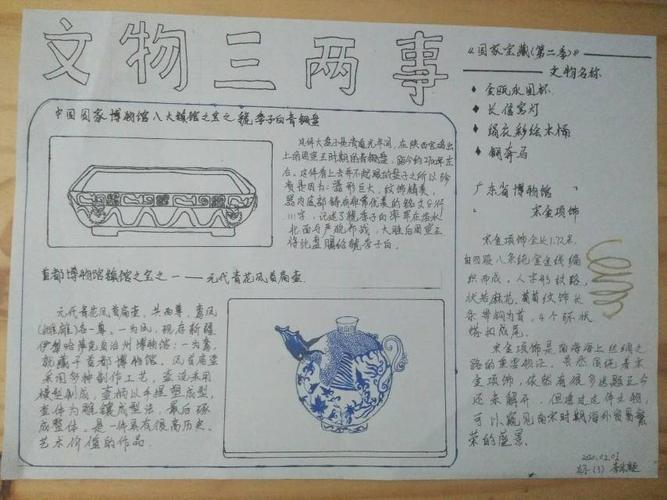 文物三两事
中国国家博物馆八大镇馆之宝之一虢季子白青铜盘
这件大盘子是清道光年间，在陕西宝鸡出
土的周宣王时期的青铜盘，距今约2700年左
右。这件看上去并不起眼的盘子之所以珍
贵是因为：器形巨大，纹饰精美，
器内底部铸有非常优美的铭文8行
111字，记述了虢季子白率军在洛水
北面与严狁作战，大胜后周宣王
将此盘赐给虢季子白。
首都博物馆镇馆之宝之一——元代青花凤首扁壶
元代青花凤首扁壶，共两尊，鸾凤
(雌雄)各一尊，一为凤，现存新疆
伊犁哈萨克自治州博物馆；一为鸾，
就藏于首都博物馆。凤首扁壶
采用多种制作工艺，壶流采用
模型制成，壶柄以手捏塑成型，
壶体为雕镶成型法，最后琢
成整体。是一件具有很高历史、
艺术价值的作品。
《国家宝藏(第二季)》
文物名称
金瓯永固杯
长信宫灯
绢衣彩绘木俑
铜奔马
广东省博物馆
宋金项饰
宋金项饰全长1.72米，
由四股八条纯金金线编
织而成，人字形纹路，
状若麻花，
带钩为首，4个环状
搭扣成尾。
宋金项饰是南海海上丝绸之
路的重要物证，虽然围绕着宋
金项饰，依然有很多迷题正今
还未解开，但透过这件文物，
可以窥见南宋时期海外贸易繁
荣的盛景。
2020.02.03